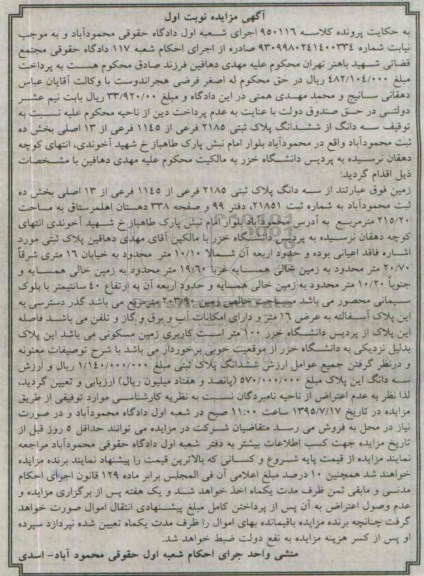 آگهی مزایده نوبت اول
به حکایت پرونده کلاسه ۹۵۰۱۱۶ اجرای شعبه اول دادگاه حقوقی محمودآباد و به موجب
نیابت شماره ۹۳۰۹۹۸۰۲۴۱۴۰۰۳۳۴ صادره از اجرای احکام شعبه ۱۱۷ دادگاه حقوقی مجتمع
قضائی شهید باهنر تهران محکوم علیه مهدی دهاقین فرزند صادق محکوم هست به پرداخت
مبلغ ۴۸۲/۱۰۴/۰۰۰ ریال در حق محکوم له اصغر فرضی هجراندوست با وکالت آقایان عباس
دهقانی سانیج و محمد مهدی همتی در این دادگاه و مبلغ ۳۳/۹۲۰/۰۰ ریال بابت نیم عشر
دولتی در حق صندوق دولت با عنایت به عدم پرداخت دین از ناحیه محکوم علیه نسبت به
توقیف سه دانگ از ششدانگ پلاک ثبتی ۲۱۸۵ فرعی از ۱۱۴۵ فرعی از ۱۳ اصلی بخش ده
ثبت محمودآباد واقع در محمودآباد بلوار امام نبش پارک طاهباز خ شهید آخوندی، انتهای کوچه
دهقان نرسیده به پردیس دانشگاه خزر به مالکیت محکوم علیه مهدی دهاقین با مشخصات
ذیل اقدام گردید:
زمین فوق عبارتند از سه دانگ پلاک ثبتی ۲۱۸۵ فرعی از ۱۱۴۵ فرعی از ۱۳ اصلی بخش ده
ثبت محمودآباد به شماره ثبت ۲۱۸۵۱، دفتر ۹۹ و صفحه ۳۳۸ دهستان اهلمرستاق به مساحت
۲۱۵/۲۰ مترمربع به آدرس محمودآباد بلوار امام نبش پارک طاهباز خ شهید آخوندی انتهای
کوچه دهقان نرسیده به پردیس دانشگاه خزر با مالکین آقای مهدی دهاقین پلاک ثبتی مورد
اشاره فاقد اعیانی بوده و حدود اربعه آن شمالا ۱۰/۱۰ متر محدود به خیابان ۱۶ متری شرقاً
۲۰/۷۰ متر محدود به زمین خالی همسایه غرباً ۱۹/۶۰ متر محدود به زمین خالی همسایه و
جنوباً ۱۰/۲۰ محدود به زمین خالی همسایه و حدود اربعه آن به ارتفاع ۴۰ سانتیمتر با بلوک
سیمانی محصور می باشد مساحت خالص زمین ۲۰۳/۹۰ مترمربع می باشد گذر دسترسی به
این پلاک آسفالته به عرض ۱۶ متر و دارای امکانات آب و برق و گاز و تلفن می باشد فاصله
این پلاک از پردیس دانشگاه خزر ۱۰۰ متر است کاربری زمین مسکونی می باشد این پلاک
بدلیل نزدیکی به دانشگاه خزر از موقعیت خوبی برخوردار می باشد با شرح توصیفات معنونه
و درنظر گرفتن جمیع عوامل ارزش ششدانگ پلاک ثبتی مبلغ ۱/۱۴۰/۰۰۰/۰۰۰ ریال و ارزش
سه دانگ این پلاک مبلغ ۵۷۰/۰۰۰/۰۰۰ (پانصد و هفتاد میلیون ریال) ارزیابی و تعیین گردید،
لذا نظر به عدم اعتراض از ناحیه نامبردگان نسبت به نظریه کارشناسی موارد توقیفی از طریق
مزایده در تاریخ ۱۳۹۵/۷/۱۷ ساعت ۱۱:۰۰ صبح در شعبه اول دادگاه محمودآباد و در صورت
نیاز در محل به فروش می رسد متقاضیان شرکت در مزایده می توانند حداقل ۵ روز قبل از
تاریخ مزایده جهت کسب اطلاعات بیشتر به دفتر شعبه اول دادگاه حقوقی محمودآباد مراجعه
نمایند مزایده از قیمت پایه شروع و کسانی که بالاترین قیمت را پیشنهاد نمایند برنده مزایده
خواهند شد همچنین ۱۰ درصد مبلغ اعلامی آن فی المجلس برابر ماده ۱۲۹ قانون اجرای احکام
مدنی و مابقی ثمن ظرف مدت یکماه اخذ خواهد شد و یک هفته پس از برگزاری مزایده و
عدم وصول اعتراض به آن پس از پرداختن کامل مبلغ پیشنهادی انتقال اموال صورت خواهد
گرفت چنانچه برنده مزایده باقیمانده بهای اموال را ظرف مدت یکماه تعیین شده نپردازد سپرده
او پس از کسر هزینه مزایده به نفع دولت ضبط خواهد شد.
منشی واحد جرای احکام شعبه اول حقوقی محمود آباد- اسدی